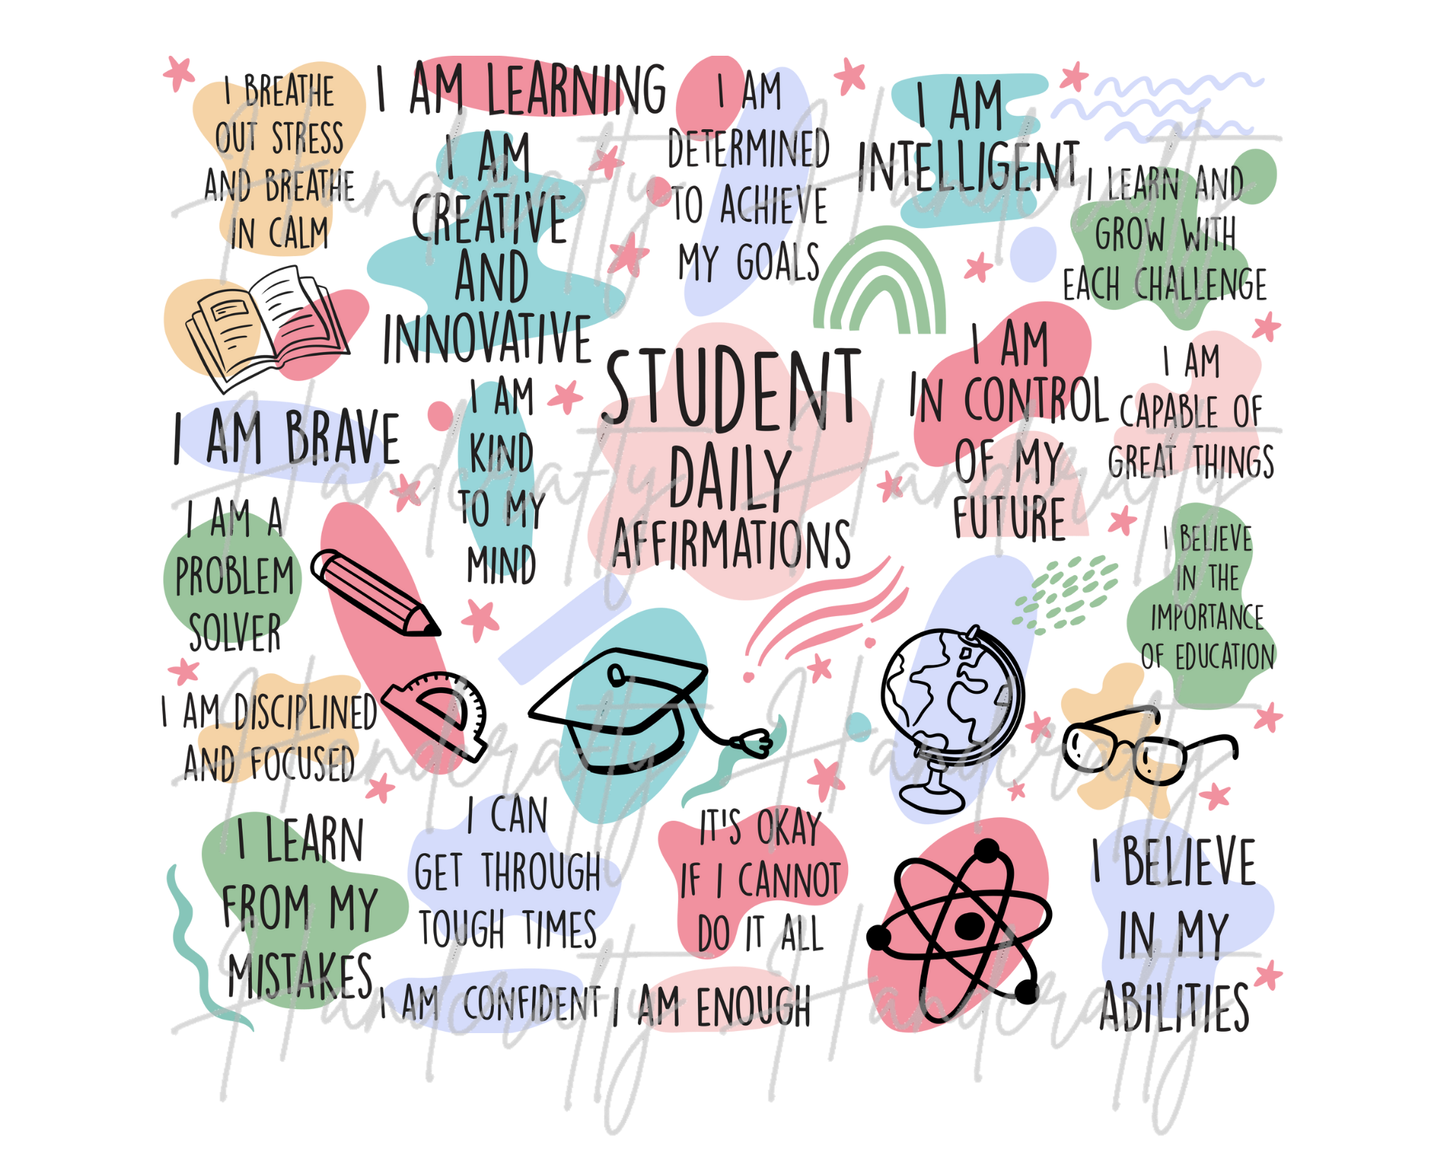 I BREATHE
OUT STRESS
AND BREATHE
IN CALM
I AM LEARNING
I AM
CREATIVE
AND
INNOVATIVE
I AM
DETERMINED
TO ACHIEVE
MY GOALS
I AM
INTELLIGENT
I LEARN AND
GROW WITH
EACH CHALLENGE
I AM BRAVE
I AM
KIND
TO MY
MIND
STUDENT
DAILY
AFFIRMATIONS
I AM
IN CONTROL
OF MY
FUTURE
I AM
CAPABLE OF
GREAT THINGS
I AM A
PROBLEM
SOLVER
I BELIEVE
IN THE
IMPORTANCE
OF EDUCATION
I AM DISCIPLINED
AND FOCUSED
I LEARN
FROM MY
MISTAKES
I CAN
GET THROUGH
TOUGH TIMES
IT'S OKAY
IF I CANNOT
DO IT ALL
I BELIEVE
IN MY
ABILITIES
I AM CONFIDENT
I AM ENOUGH
Handcrafty Handcrafty Handcrafty
Handcrafty Handcrafty Handcrafty
Handcrafty Handcrafty Handcrafty
Handcrafty Handcrafty Handcrafty